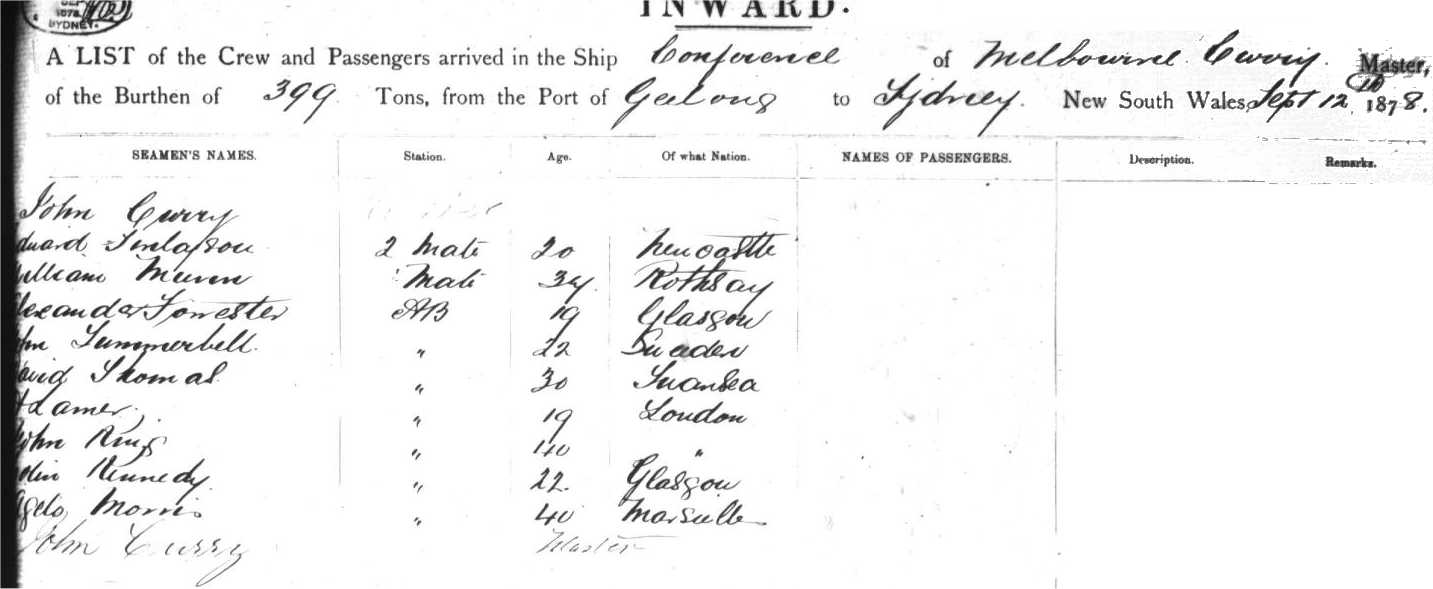 1878
SYDNEY
INWARD.
A LIST of the Crew and Passengers arrived in the Ship Conference of Melbourne Curry. Master,
of the Burthen of 399. Tons, from the Port of Geelong to Sydney. New South Wales, Sept 12th 1878.
SEAMEN'S NAMES. Station. Age. Of what Nation. NAMES OF PASSENGERS. Description. Remarks.
John Curry
dward Finlayson 2 Mate 20 Newcastle
illiam Mate Rothsay
lexander Forrester AB 19 Glasgow
ohn Summerbell " 22 Sweden
avid Thomas " 30 Swansea
" 19 London
John King " 40 "
Kennedy " 22. Glasgow
Morris " 40 Marseilles
John Curry Master